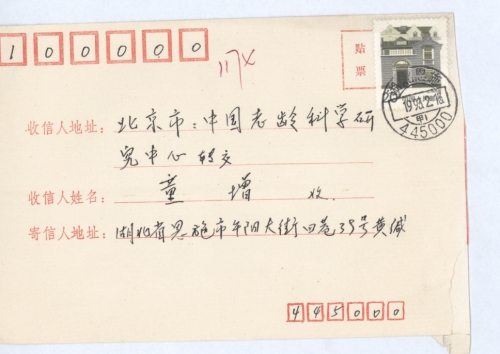 100000
117X
贴票
收信人地址:北京市:中国老龄科学研
究中心转交
收信人姓名:童增 收.
寄信人地址:湖北省恩施市午阳大街四巷39号黄诚
445000
445000